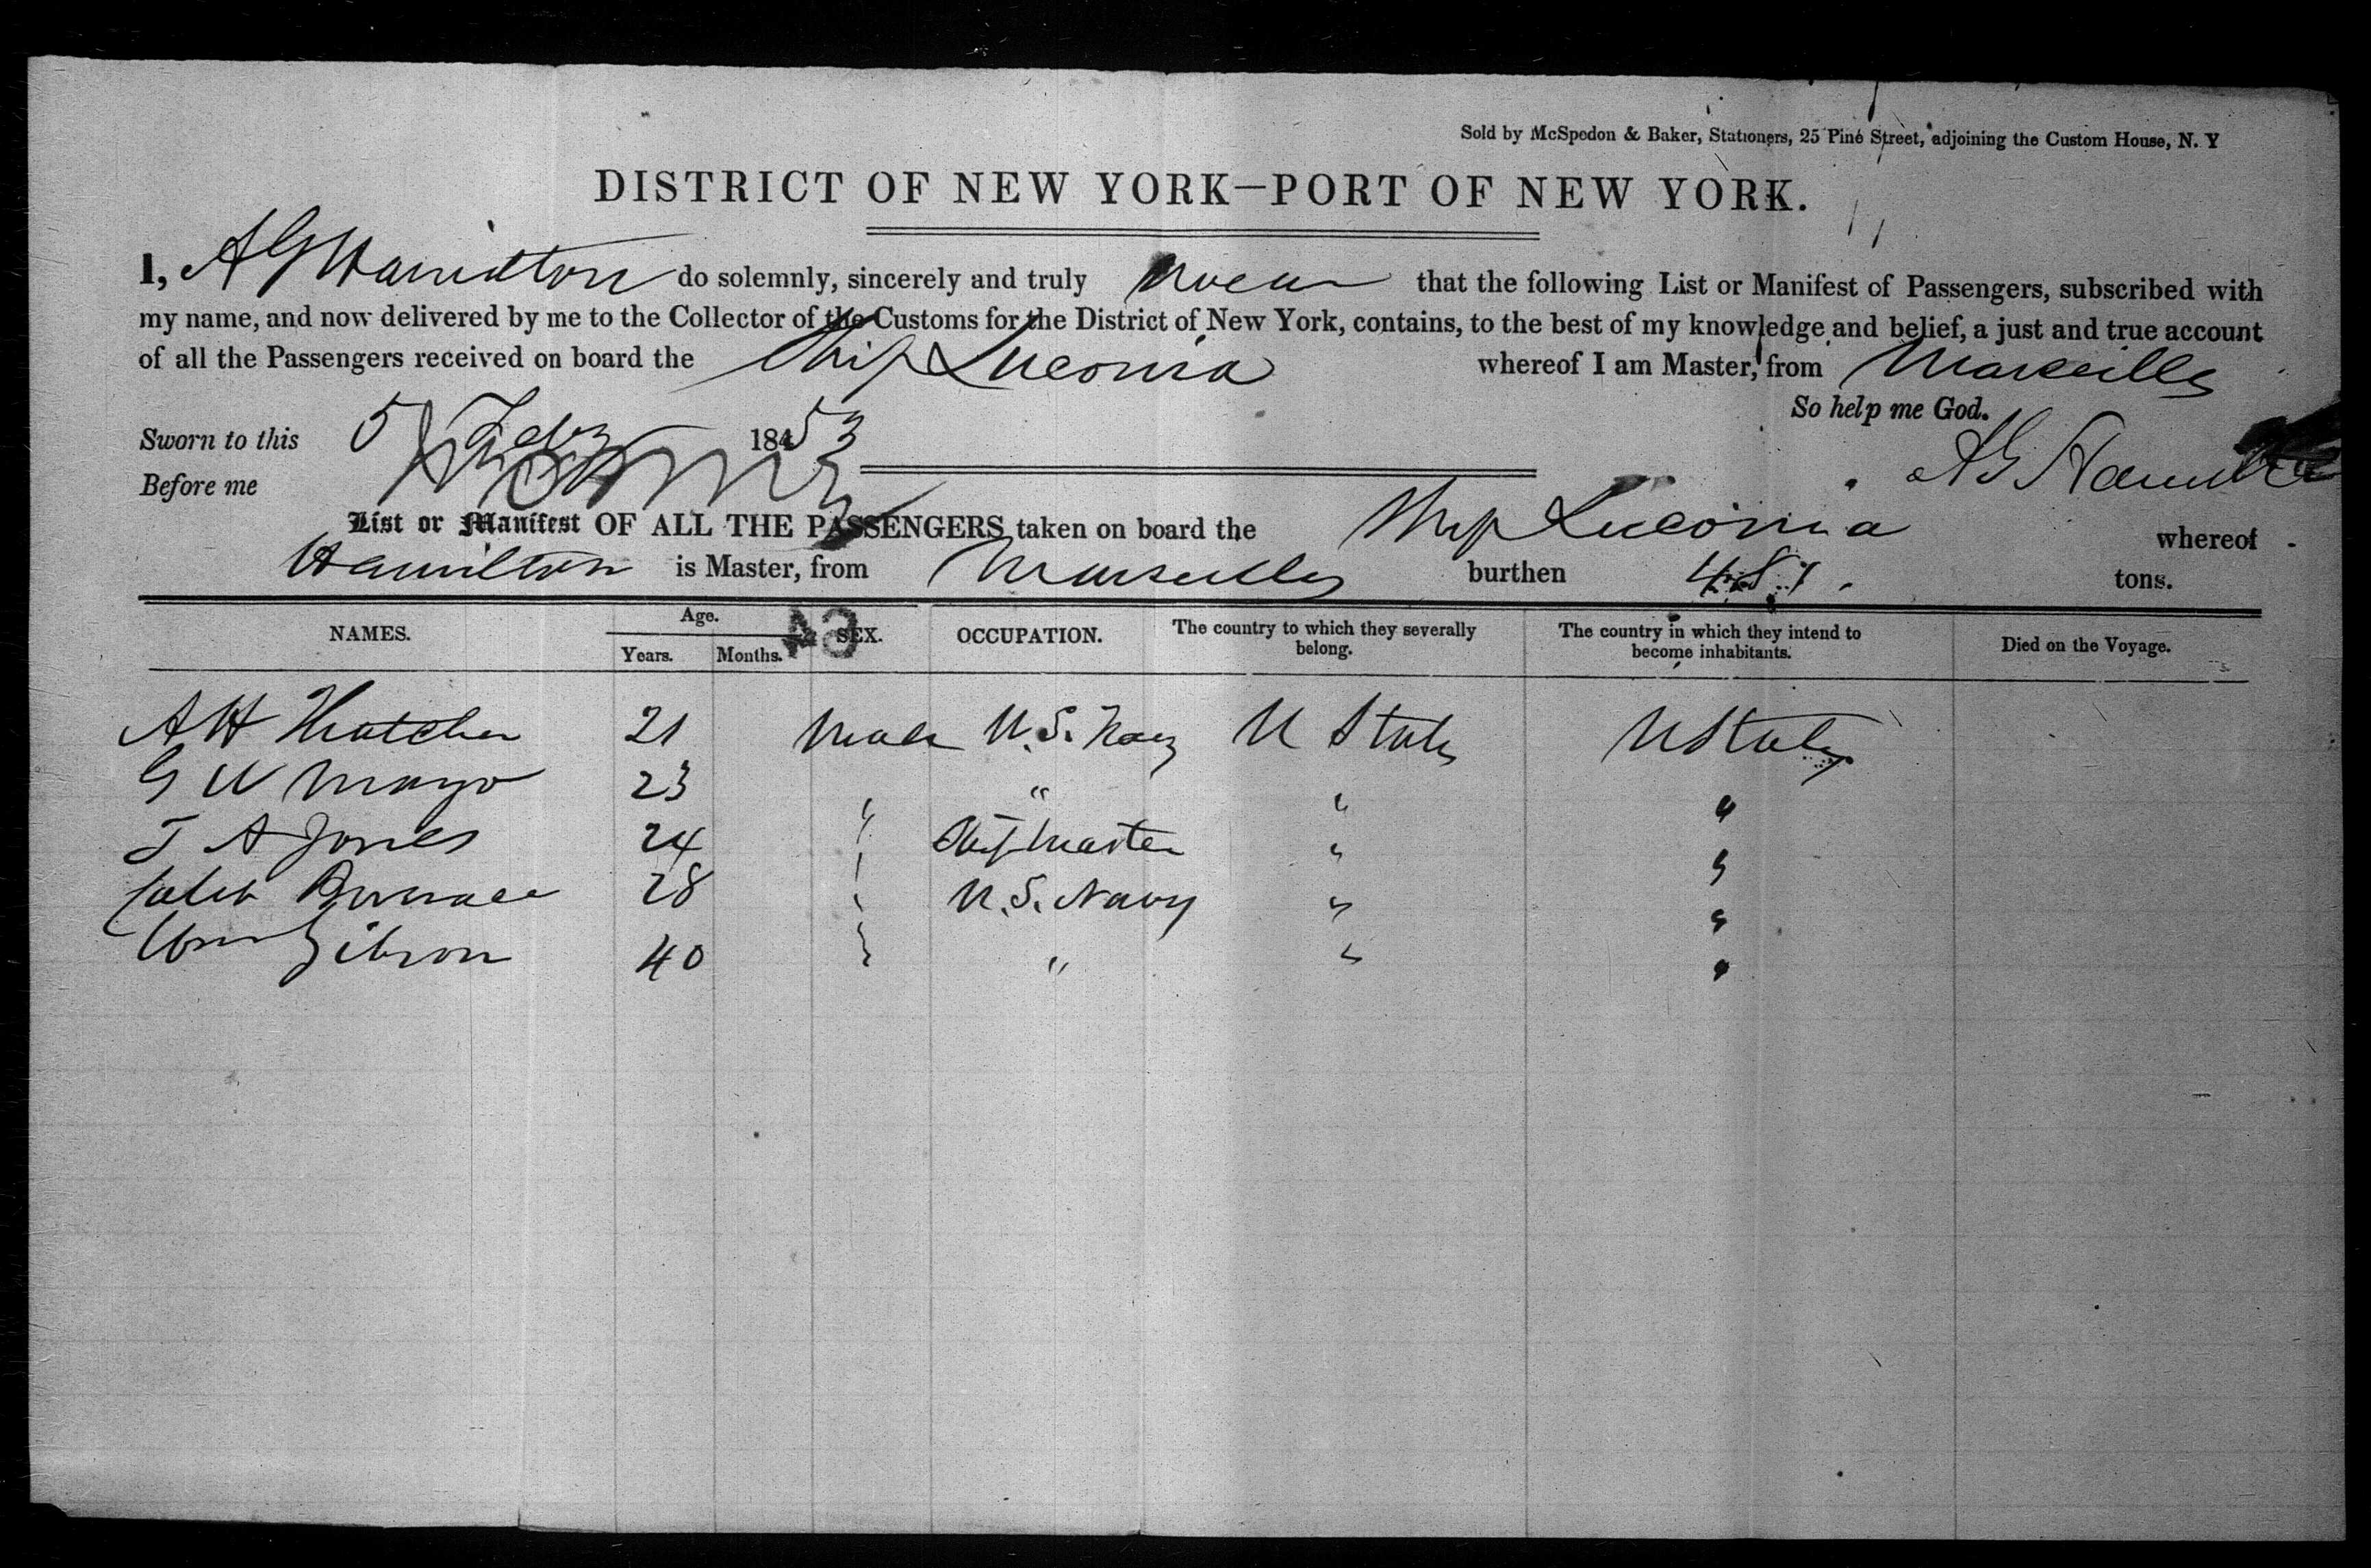 Sold by McSpedon & Baker, Stationers, 25 Pine Street, adjoining the Custom House, N. Y
DISTRICT OF NEW YORK—PORT OF NEW YORK.
I, A G Hamilton do solemnly, sincerely and truly swear that the following List or Manifest of Passengers, subscribed with
my name, and now delivered by me to the Collector of the Customs for the District of New York, contains, to the best of my knowledge and belief, a just and true account
of all the Passengers received on board the Ship Luconia whereof I am Master, from Marseilles
So help me God.
Sworn to this 5 Feby 1853
A G Hamilton
Before me
List or Manifest OF ALL THE PASSENGERS taken on board the Ship Luconia whereof
Hamilton is Master, from Marseilles burthen tons.
NAMES. Age. Years. Months. SEX. OCCUPATION. The country to which they severally belong. The country in which they intend to become inhabitants. Died on the Voyage.
A H Thatcher 21 Male U.S. Navy U States U States
G W Mayo 23 " " " "
T A Jones 24 " Ship Master " "
Caleb 28 " U.S. Navy " "
Wm Gibson 40 " " " "